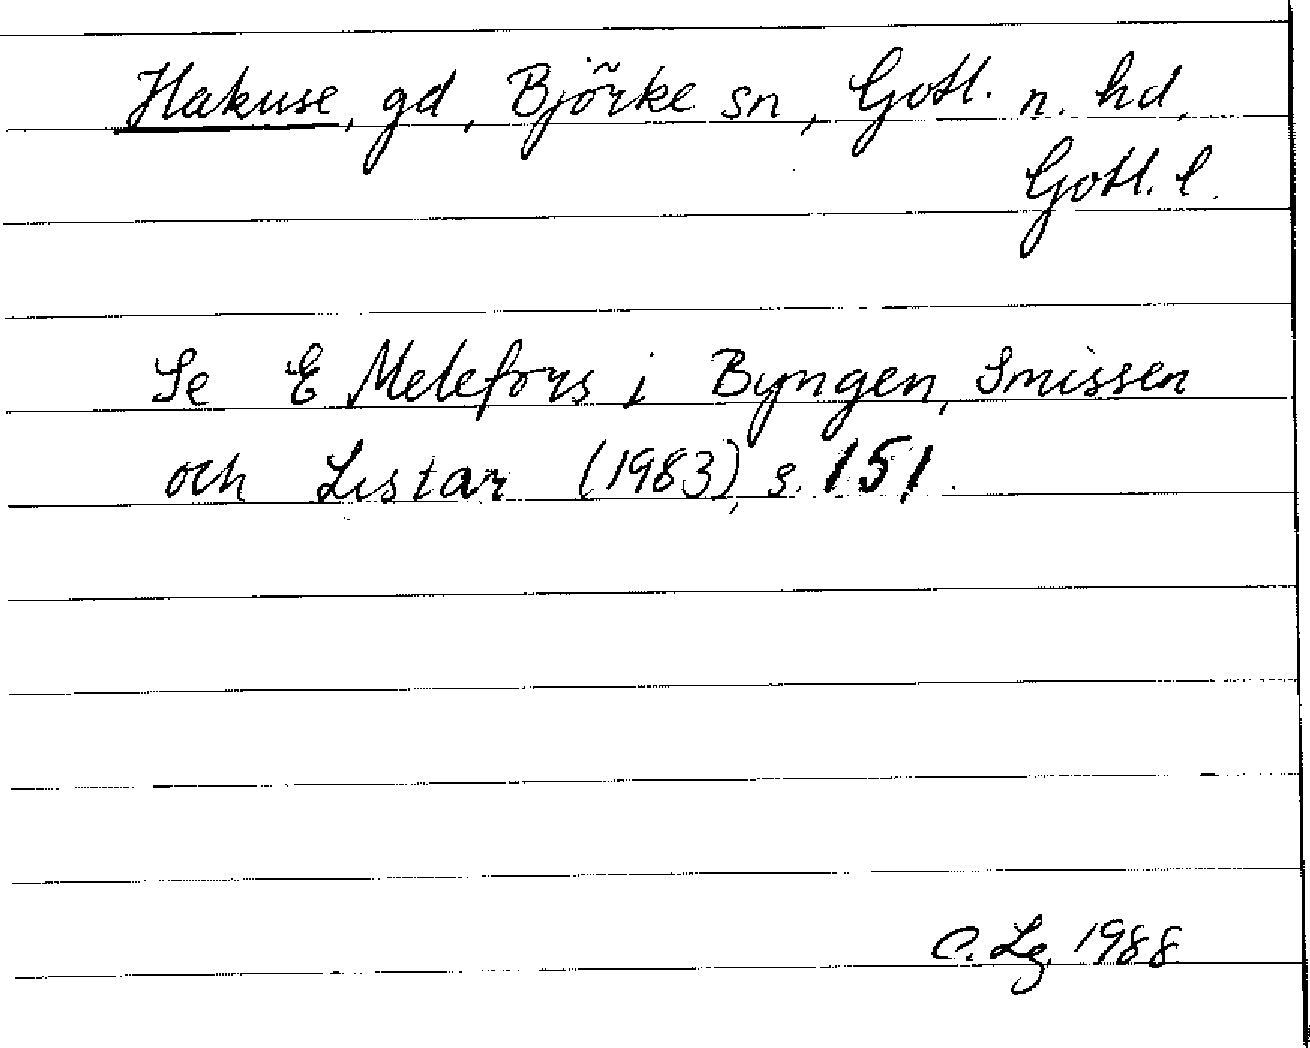 Hakuse, gd, Björke sn, Gotl. n. hd,
Gotl. l.
Se E Melefors i Byngen, Smissen
och Listar (1983), s. 151.
C. Lg. 1988